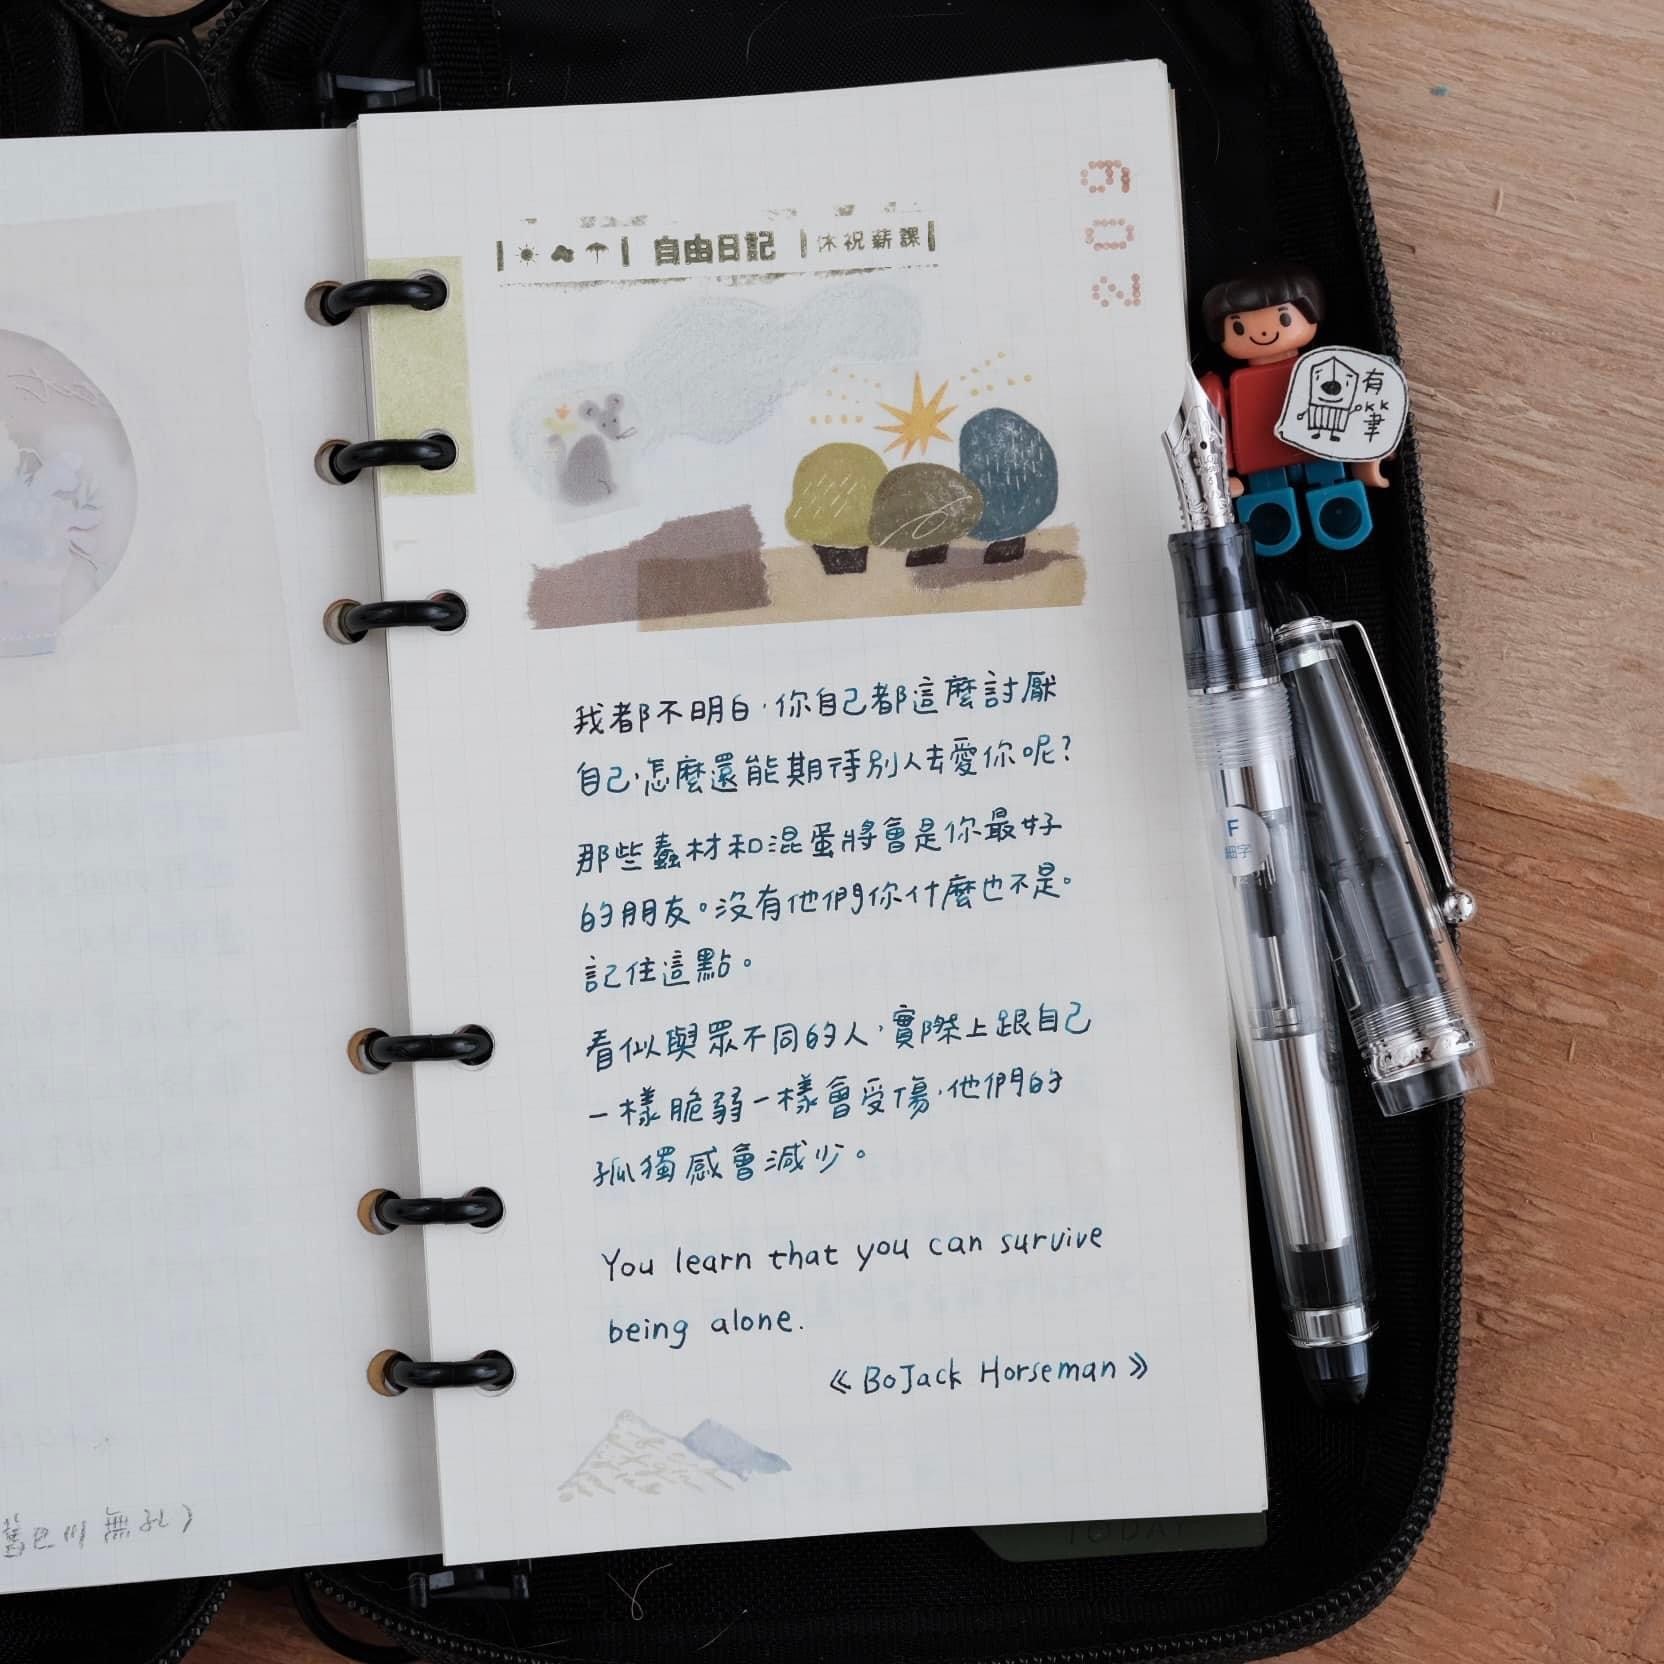 209
自由日記 休祝薪課
我都不明白,你自己都這麼討厭
自己,怎麼還能期待別人去愛你呢?
那些蠢材和混蛋將會是你最好
的朋友。沒有他們你什麼也不是。
記住這點。
看似與眾不同的人,實際上跟自己
一樣脆弱一樣會受傷,他們的
孤獨感會減少。
You learn that you can survive
being alone.
《BoJack Horseman》
有
KK
筆
F
細字
TODAY